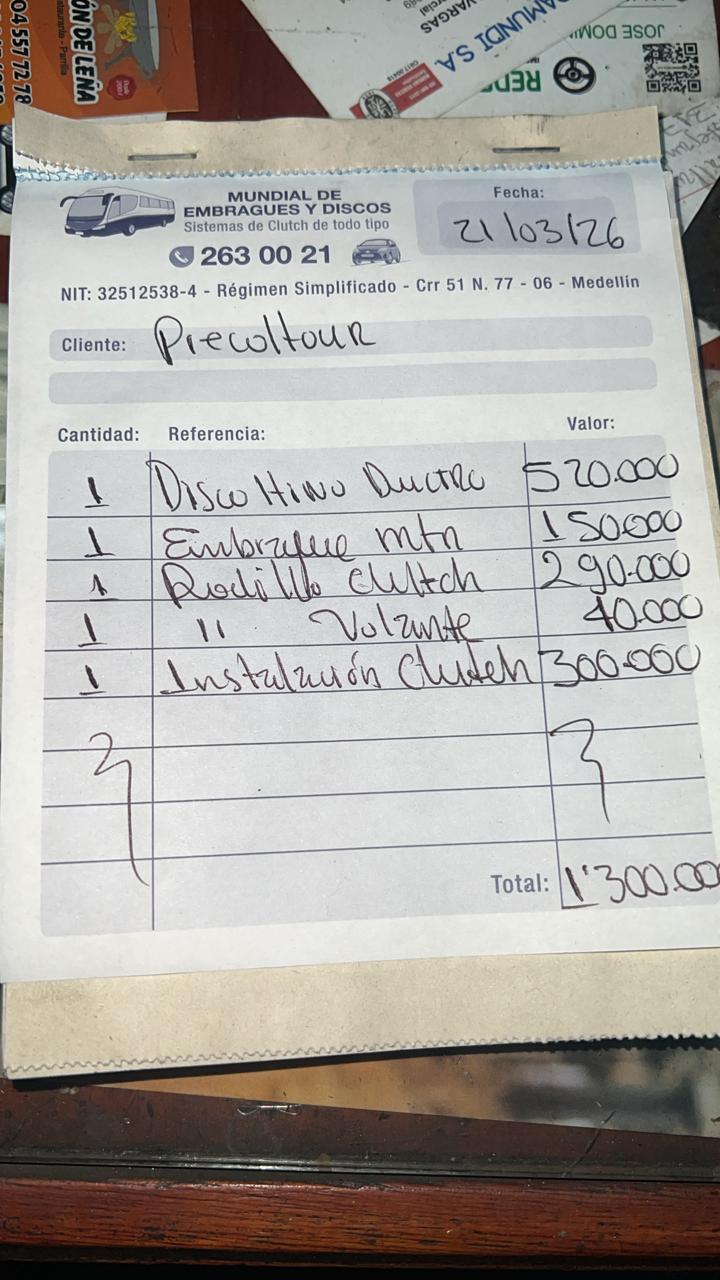 04 557 72 78
ÓN DE LEÑA
Restaurante - Parrilla
VARGAS
AMUNDI S.A
JOSE DOMI
MUNDIAL DE
EMBRAGUES Y DISCOS
Sistemas de Clutch de todo tipo
263 00 21
Fecha:
21/03/26
NIT: 32512538-4 - Régimen Simplificado - Crr 51 N. 77 - 06 - Medellín
Cliente: Precoltour
Cantidad: Referencia: Valor:
1 Disco Hino Ductro 520.000
1 Embrague mtn 150000
1 Rodillo Clutch 290.000
1 " Volante 40.000
1 Instalación Clutch 300.000
Total: 1'300.00